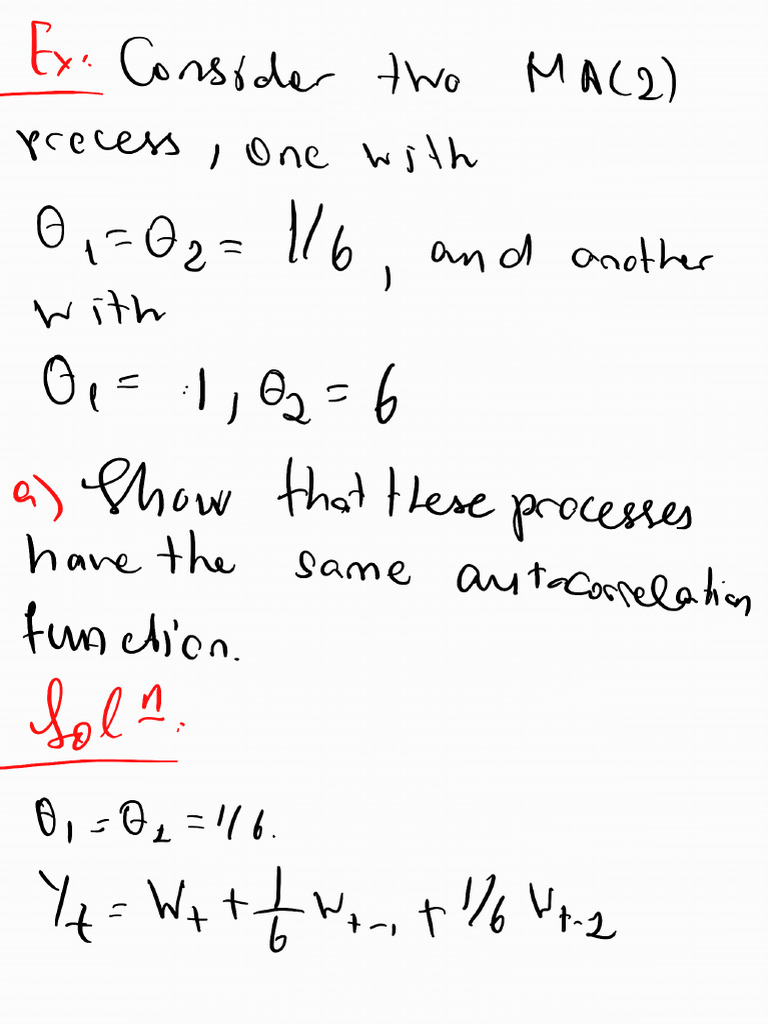 Ex: Consider two MA(2)
process, one with
θ₁ = θ₂ = 1/6, and another
with
θ₁ = 1, θ₂ = 6
a) Show that these processes
have the same autocorrelation
function.
Solⁿ:
θ₁ = θ₂ = 1/6.
Y_t = W_t + 1/6 W_{t-1} + 1/6 W_{t-2}